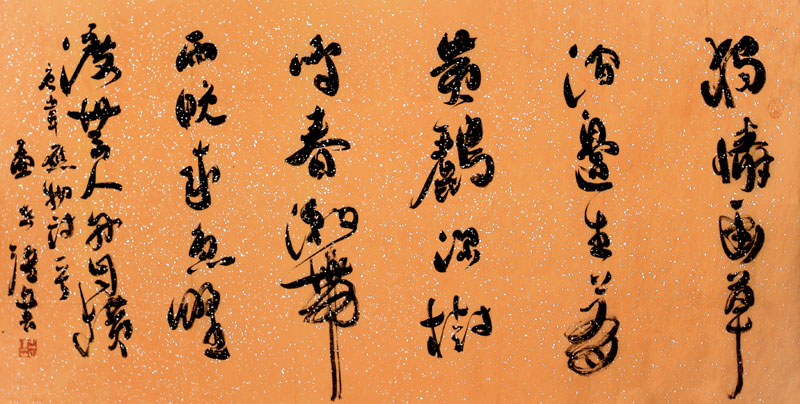 獨憐幽草
澗邊生上有
黃鸝深樹
鳴春潮帶
雨晚來急野
渡無人舟自橫
唐韋應物詩一首